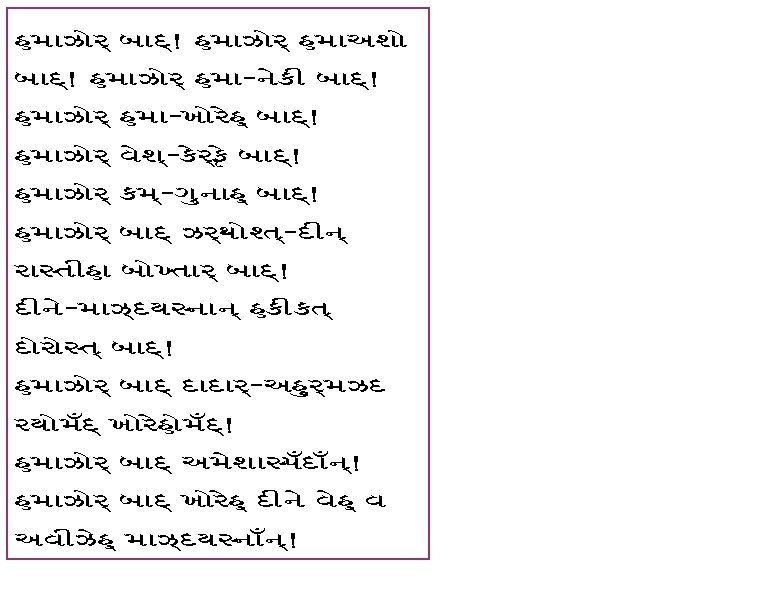 હુમાઝોર્ બાદ્! હુમાઝોર્ હુમાઅશો
બાદ્! હુમાઝોર્ હુમા-નેકી બાદ્!
હુમાઝોર્ હુમા-ખોરેહ્ બાદ્!
હુમાઝોર્ વેશ્-કેર્ફે બાદ્!
હુમાઝોર્ કમ્-ગુનાહ્ બાદ્!
હુમાઝોર્ બાદ્ ઝર્થોશ્ત્-દીન્
રાસ્તીહા બોખ્તાર્ બાદ્!
દીને-માઝ્દયસ્નાન્ હકીકત્
દોરોસ્ત્ બાદ્!
હુમાઝોર્ બાદ્ દાદાર્-અહુર્મઝદ
રયોમઁદ્ ખોરેહોમઁદ્!
હુમાઝોર્ બાદ્ અમેશાસ્પઁદાઁન્!
હુમાઝોર્ બાદ્ ખોરેહ્ દીને વેહ્ વ
અવીઝેહ્ માઝ્દયસ્નાઁન્!